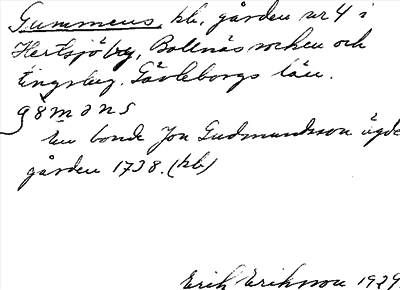 Gummens, kb, gården nr 4 i
Hertsjö by, Bollnäs socken och
tingslag. Gävleborgs län.
gømøns
En bonde Jon Gudmundsson ägde
gården 1738. (kb)
Erik Eriksson 1929.